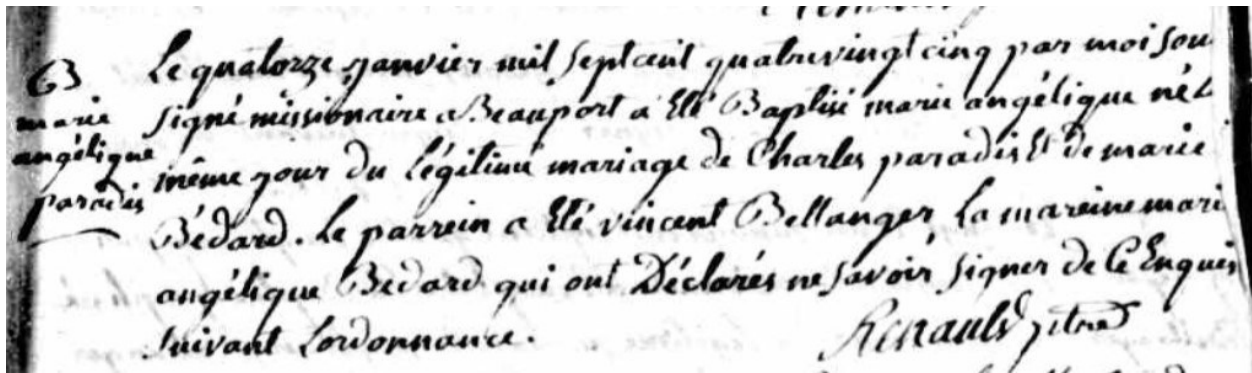 B
marie
angélique
paradis
Le quatorze janvier mil septcent quatrevingtcinq par moi sou
signé missionaire a Beauport a Eté Baptisé marie angélique née
même jour du Légitime mariage de Charles paradis Et de marie
Bédard. Le parrein a Eté vincent Bellanger La mareine mari
angélique Bedard qui ont Déclarés ne savoir signer de Ce Enquis
suivant Lordonnance.
Renauld ptre